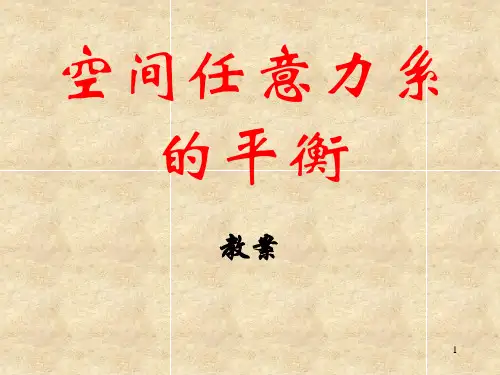 空间任意力系
的平衡
教案
1